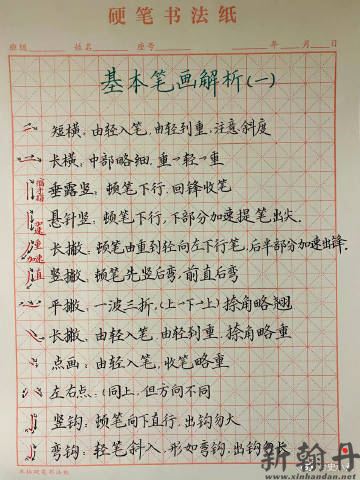 硬笔书法纸
班级 姓名 座号 年 月 日
基本笔画解析(一)
短横:由轻入笔,由轻到重,注意斜度
长横:中部略细,重→轻→重
垂露竖:顿笔下行,回锋收笔
悬针竖:顿笔下行,下部分加速提笔出尖.
长撇:顿笔由重到轻向左下行笔,后半部分加速出锋.
竖撇:顿笔先竖后弯,前直后弯
平撇:一波三折,(上→下→上)捺角略翘
长撇:由轻入笔,由轻到重,捺角略重
点画:由轻入笔,收笔略重
左右点:(同上,但方向不同
竖钩:顿笔向下直行,出钩勿大
弯钩:轻笔斜入,形如弯钩,出钩勿长
新翰丹
www.xinhandan.net